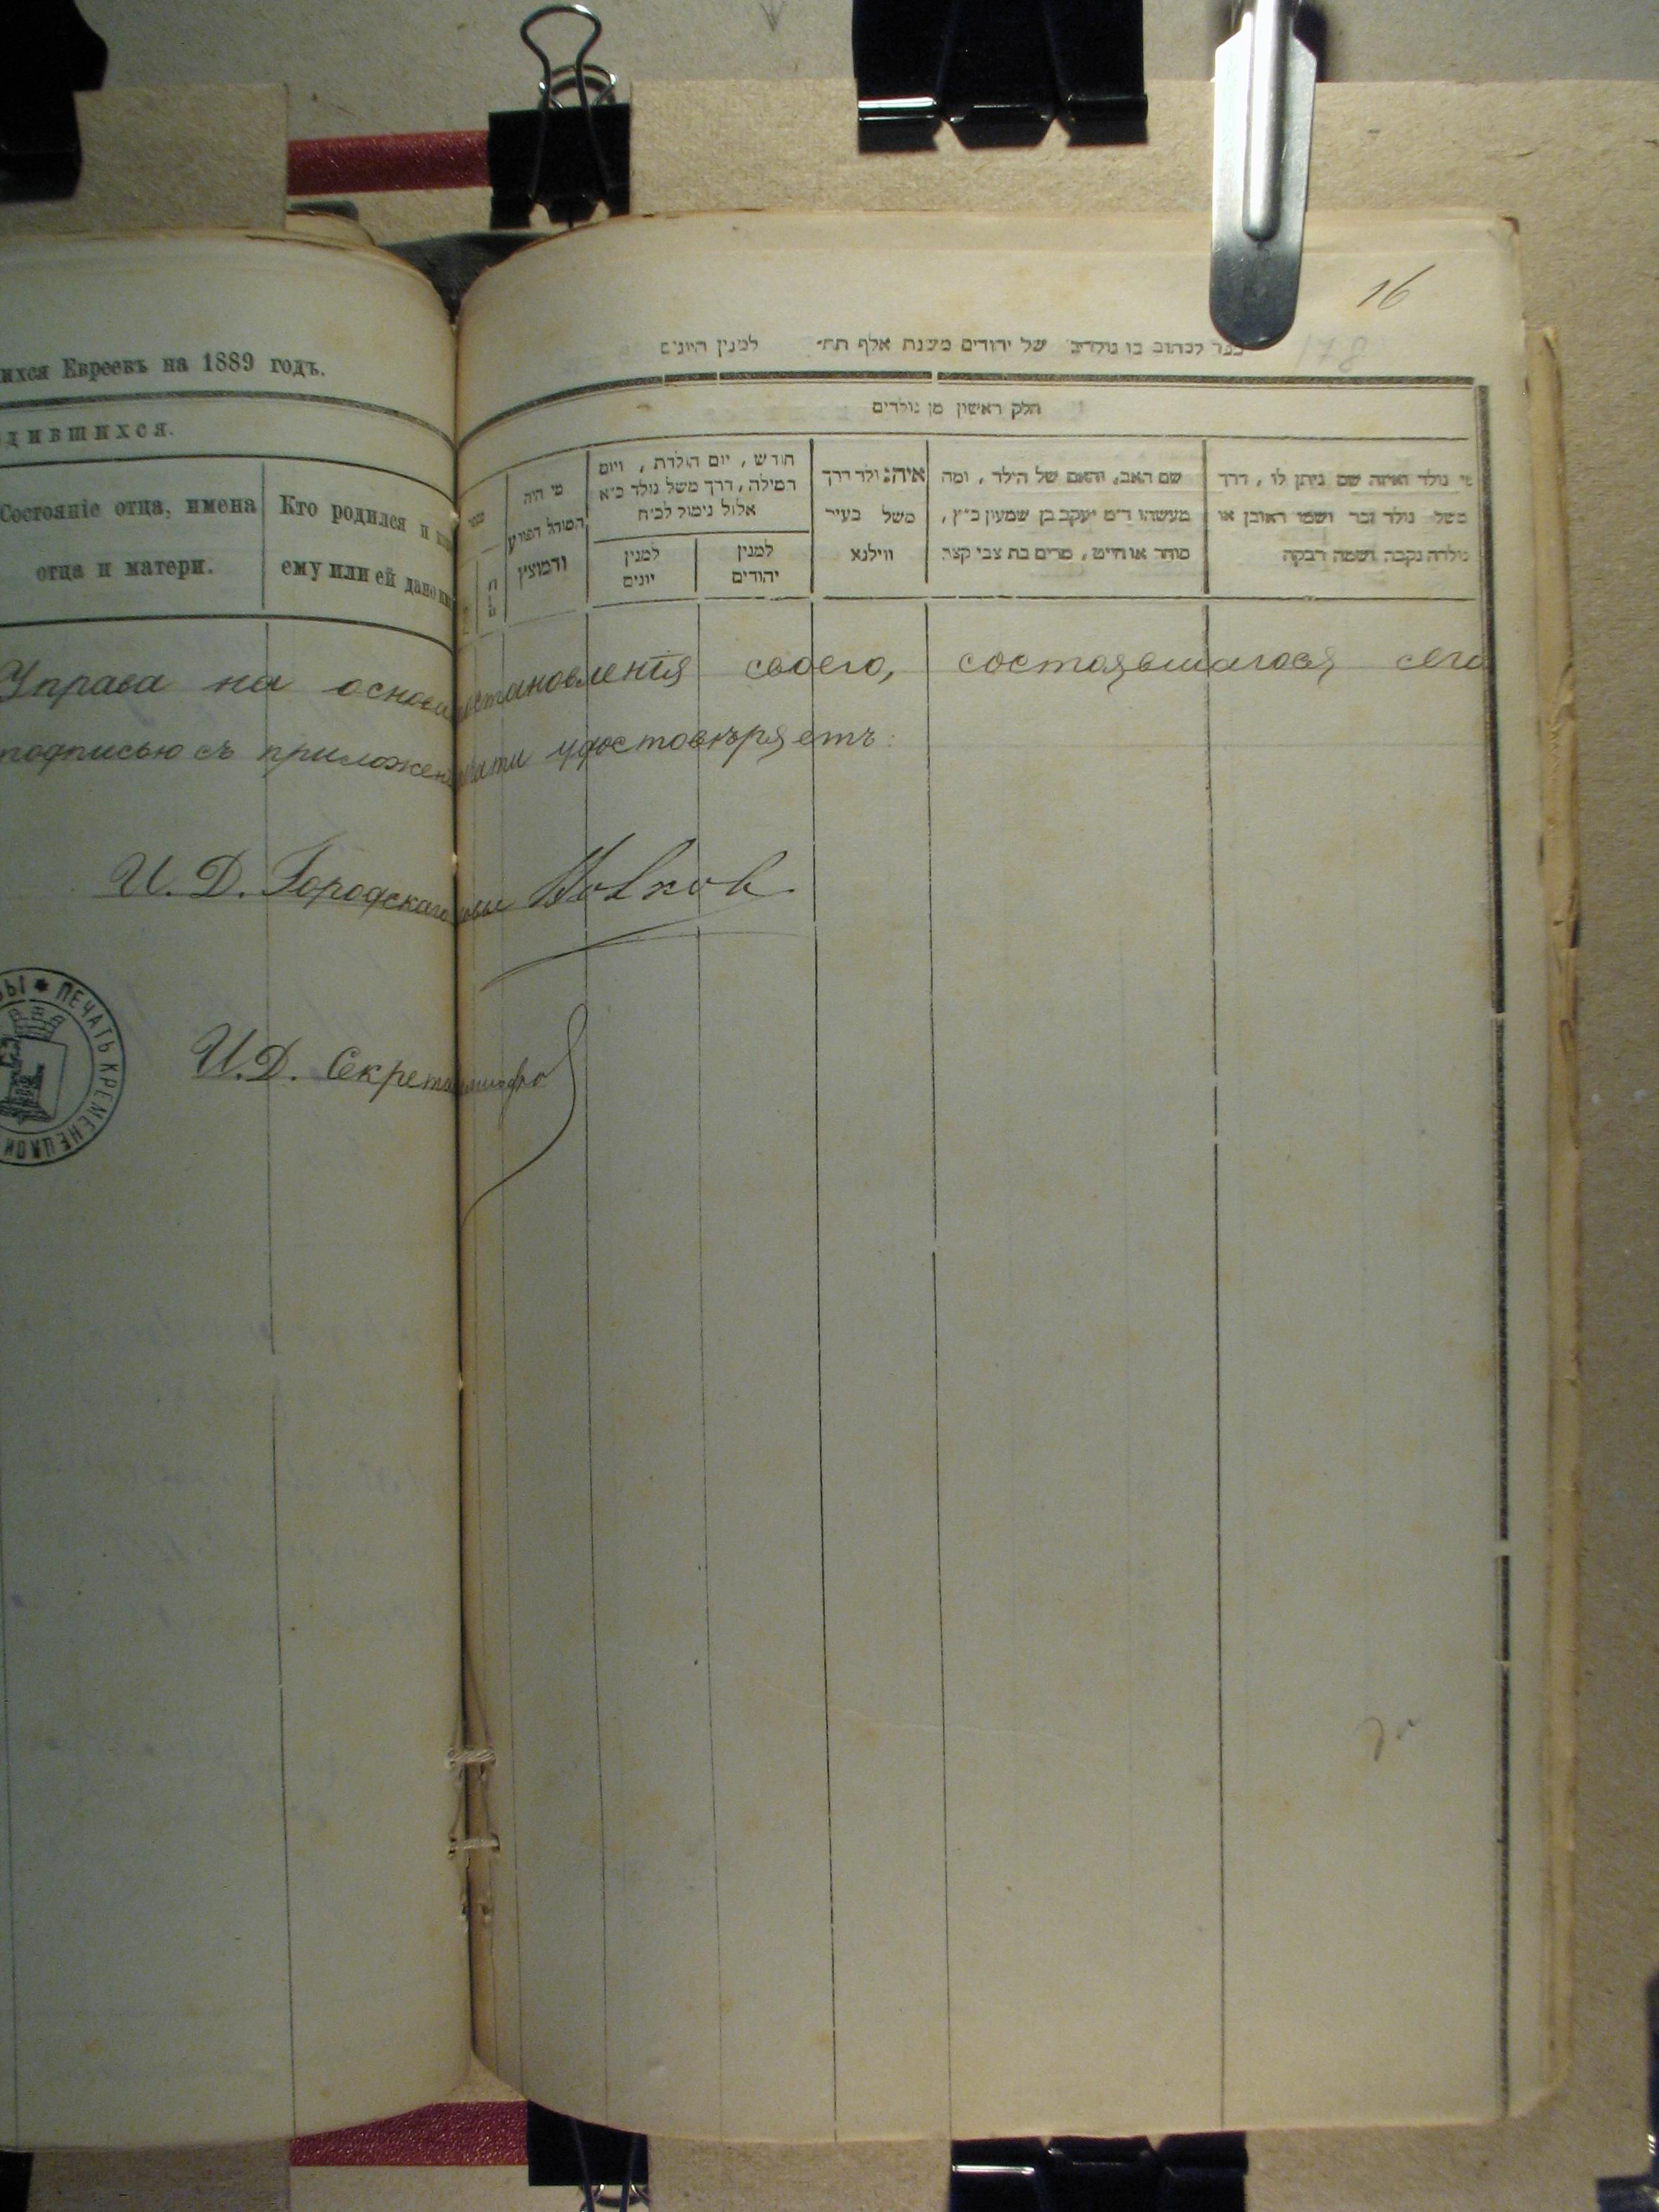 16
178
ихся Евреевъ на 1889 годъ.
дившихся.
Состояніе отца, имена
отца и матери.
Кто родился и
ему или ей дано
של יהודים משנת אלף תת״ למנין היונים
חלק ראשון מן נולדים
מי היה
המוהל
והמוצץ
חודש , יום הולדת , ויום
המילה , דרך משל נולד כ״א
אלול נימול לכ״ח
למנין
יונים
למנין
יהודים
איה: ולד דרך
משל בעיר
ווילנא
שם האב, והאם של הילד , ומה
מעשהו ד״מ יעקב בן שמעון כ״ץ ,
סוחר או חייט , מרים בת צבי קצר.
מי נולד ואיזה שם ניתן לו , דרך
משל נולד זכר ושמו ראובן או
נולדה נקבה ושמה רבקה
Управа на основ становленія своего, состоявшагося сего
подписью съ приложен удостовѣряетъ:
И. Д. Городскаго
И. Д. Секрета
ПЕЧАТЬ КРЕМЕНЕЦКОЙ